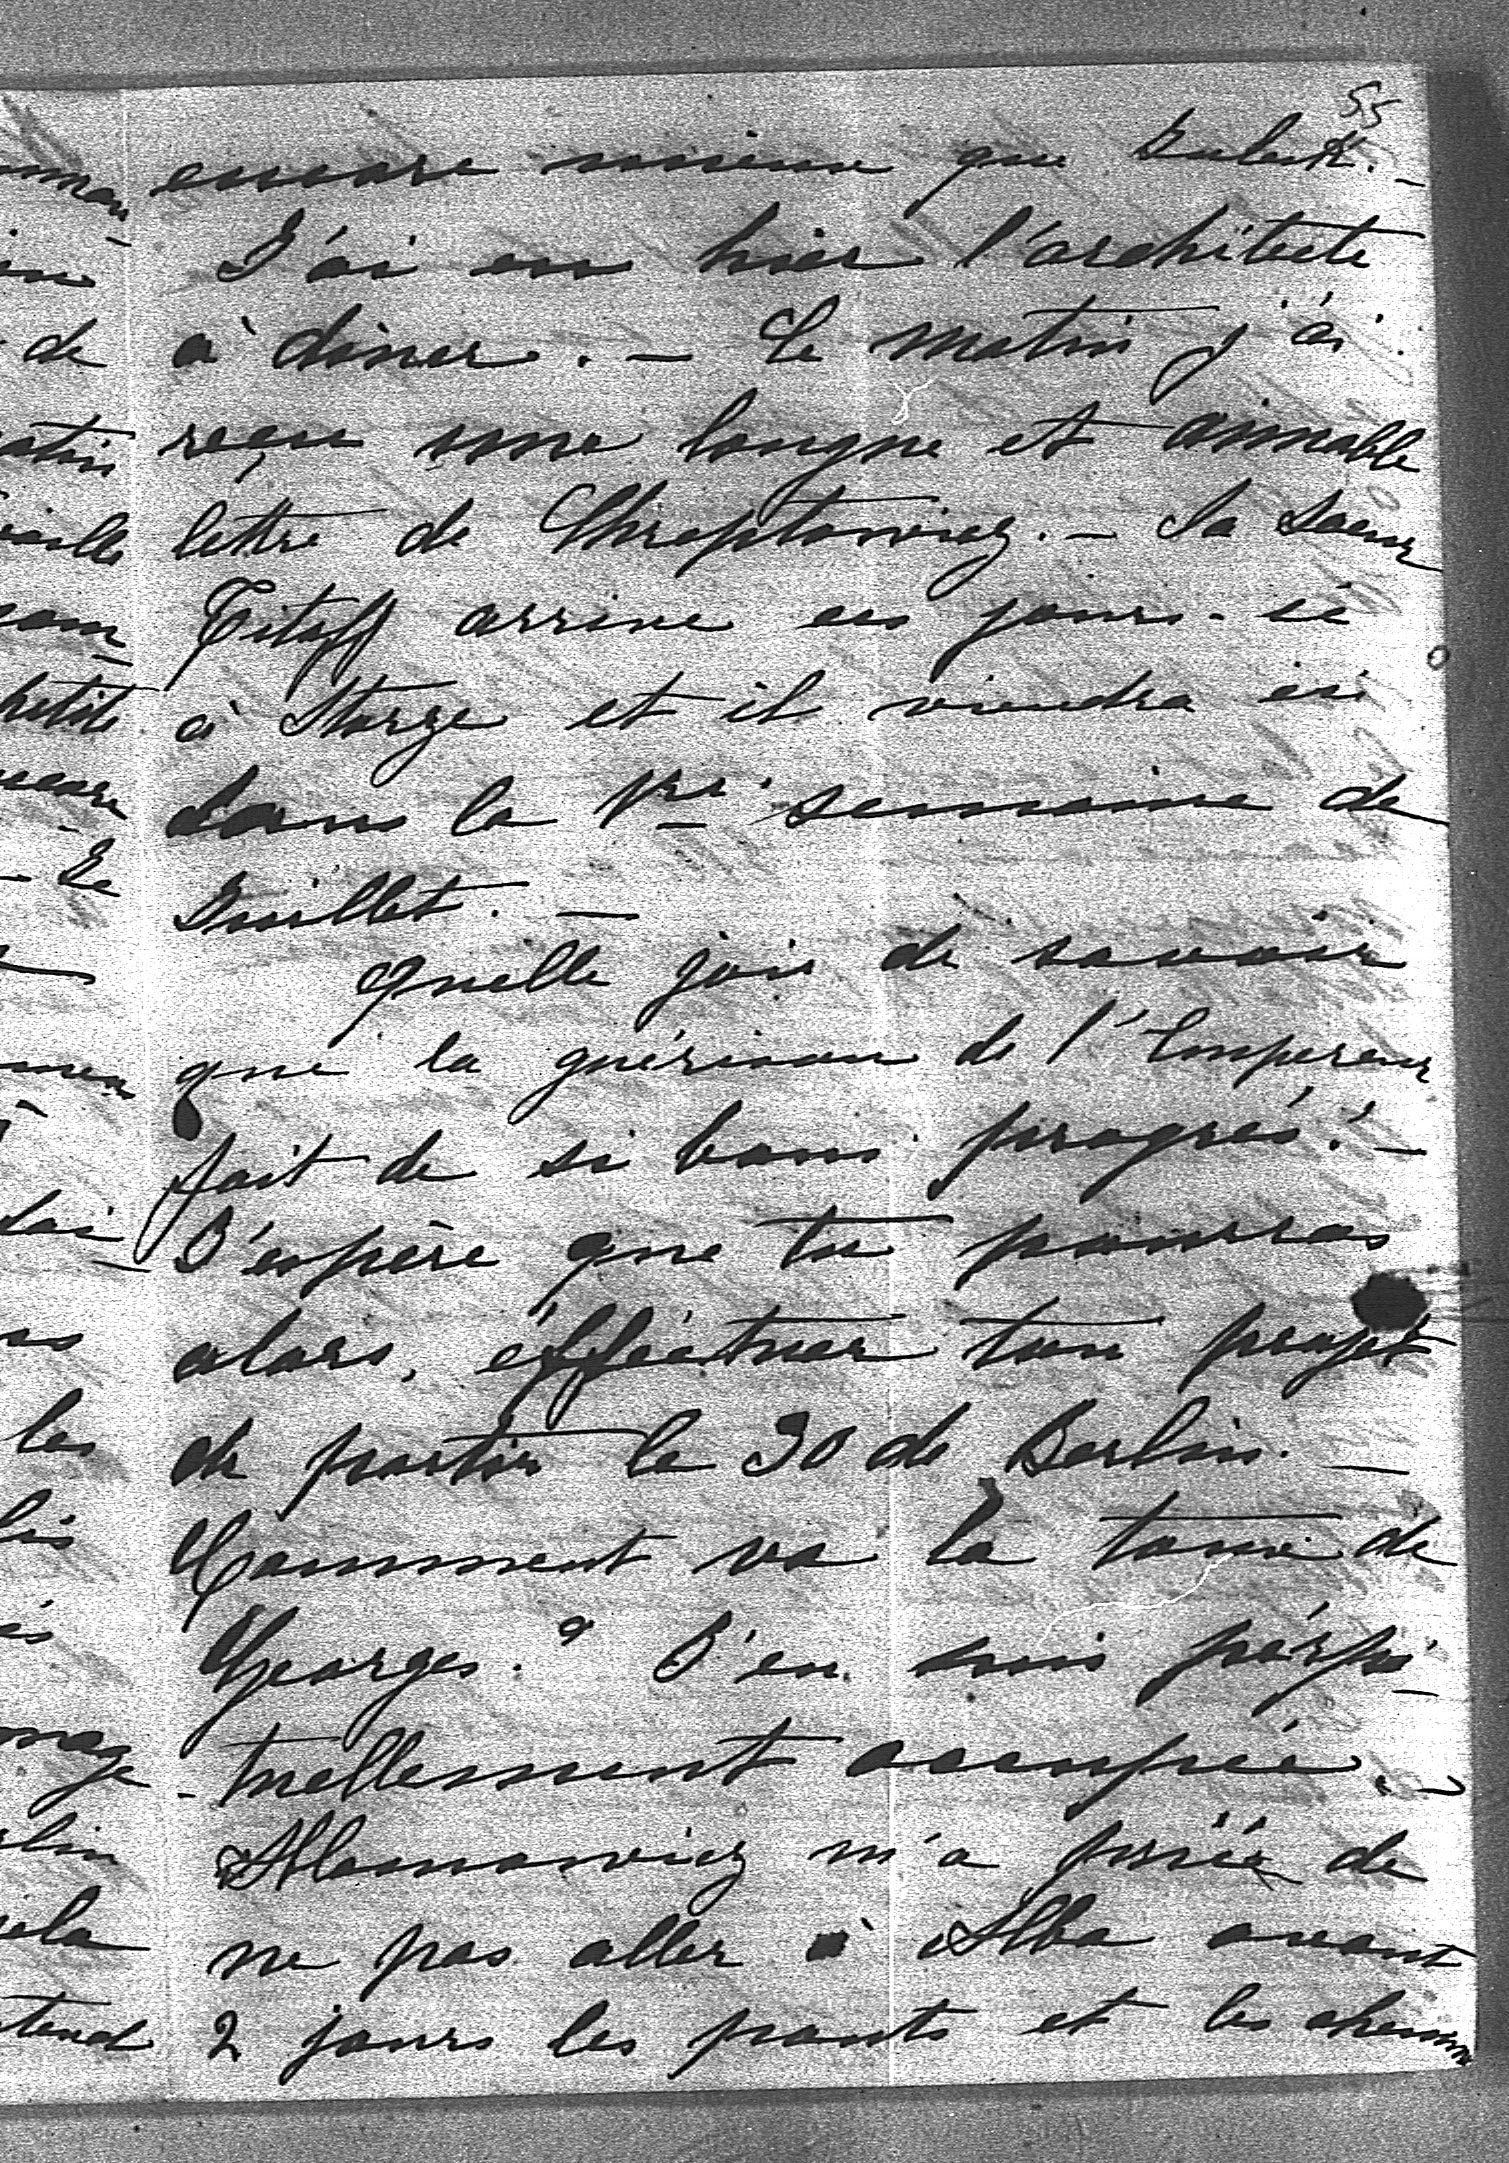 55
encore mieux que
J'ai eu hier l'architecte
à dîner. — Le matin j'ai
reçu une longue et aimable
lettre de Chreptowicz. — Sa soeur
Titoff arrive ces jours-ci
à Storze et il viendra ici
dans la 1re semaine de
Juillet. —
Quelle joie de savoir
que la guérison de l'Empereur
fait de si bons progrès! —
J'espère que tu pourras
alors, éfféctuer ton projet
de partir le 30 de Berlin. —
Comment va la toux de
Georges? J'en suis pérpé-
tuellement occupée. —
m'a priée de
ne pas aller à Alba avant
2 jours les ponts et les chemins